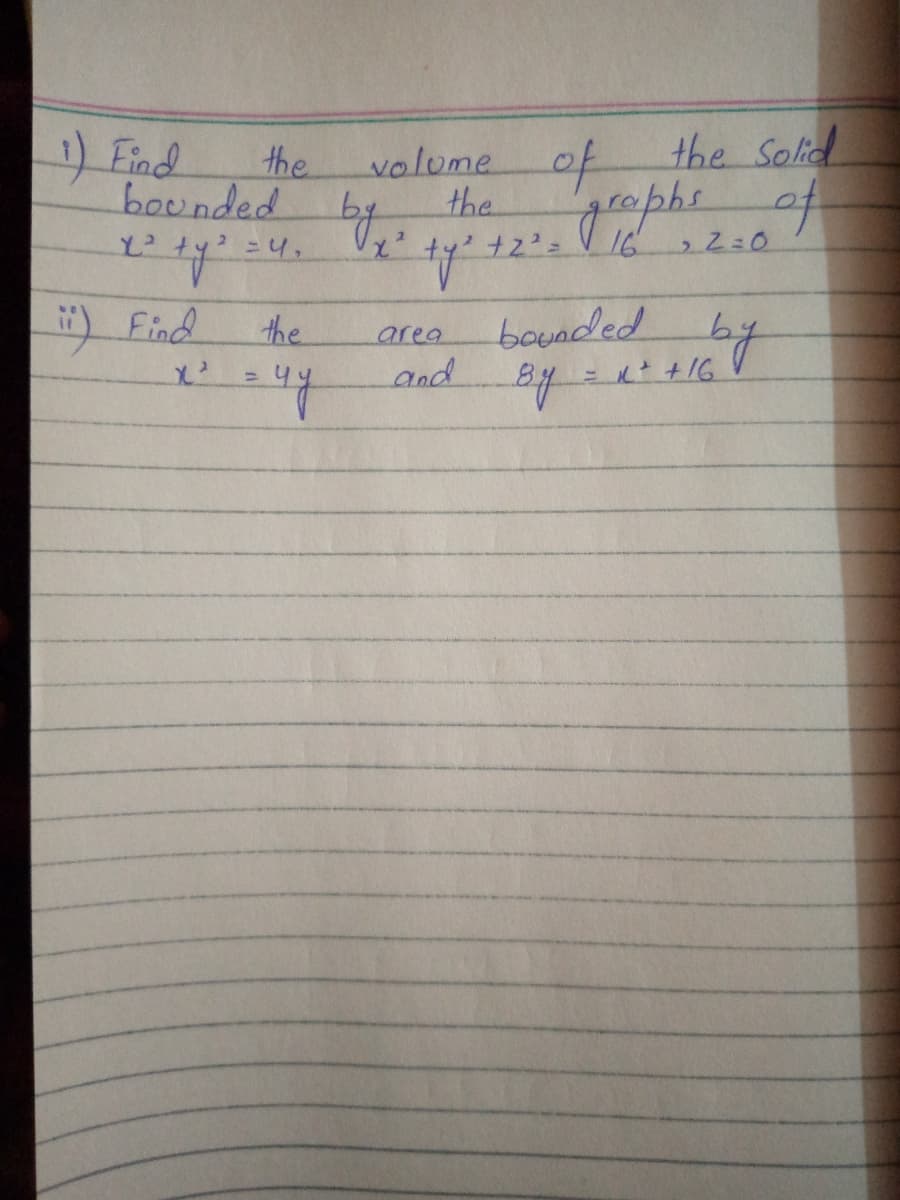 i) Find the volume of the Solid
bounded by the graphs of
x² + y² = 4, x² + y² + z² = 16, z=0
ii) Find the area bounded by
x² = 4y and 8y = x² + 16